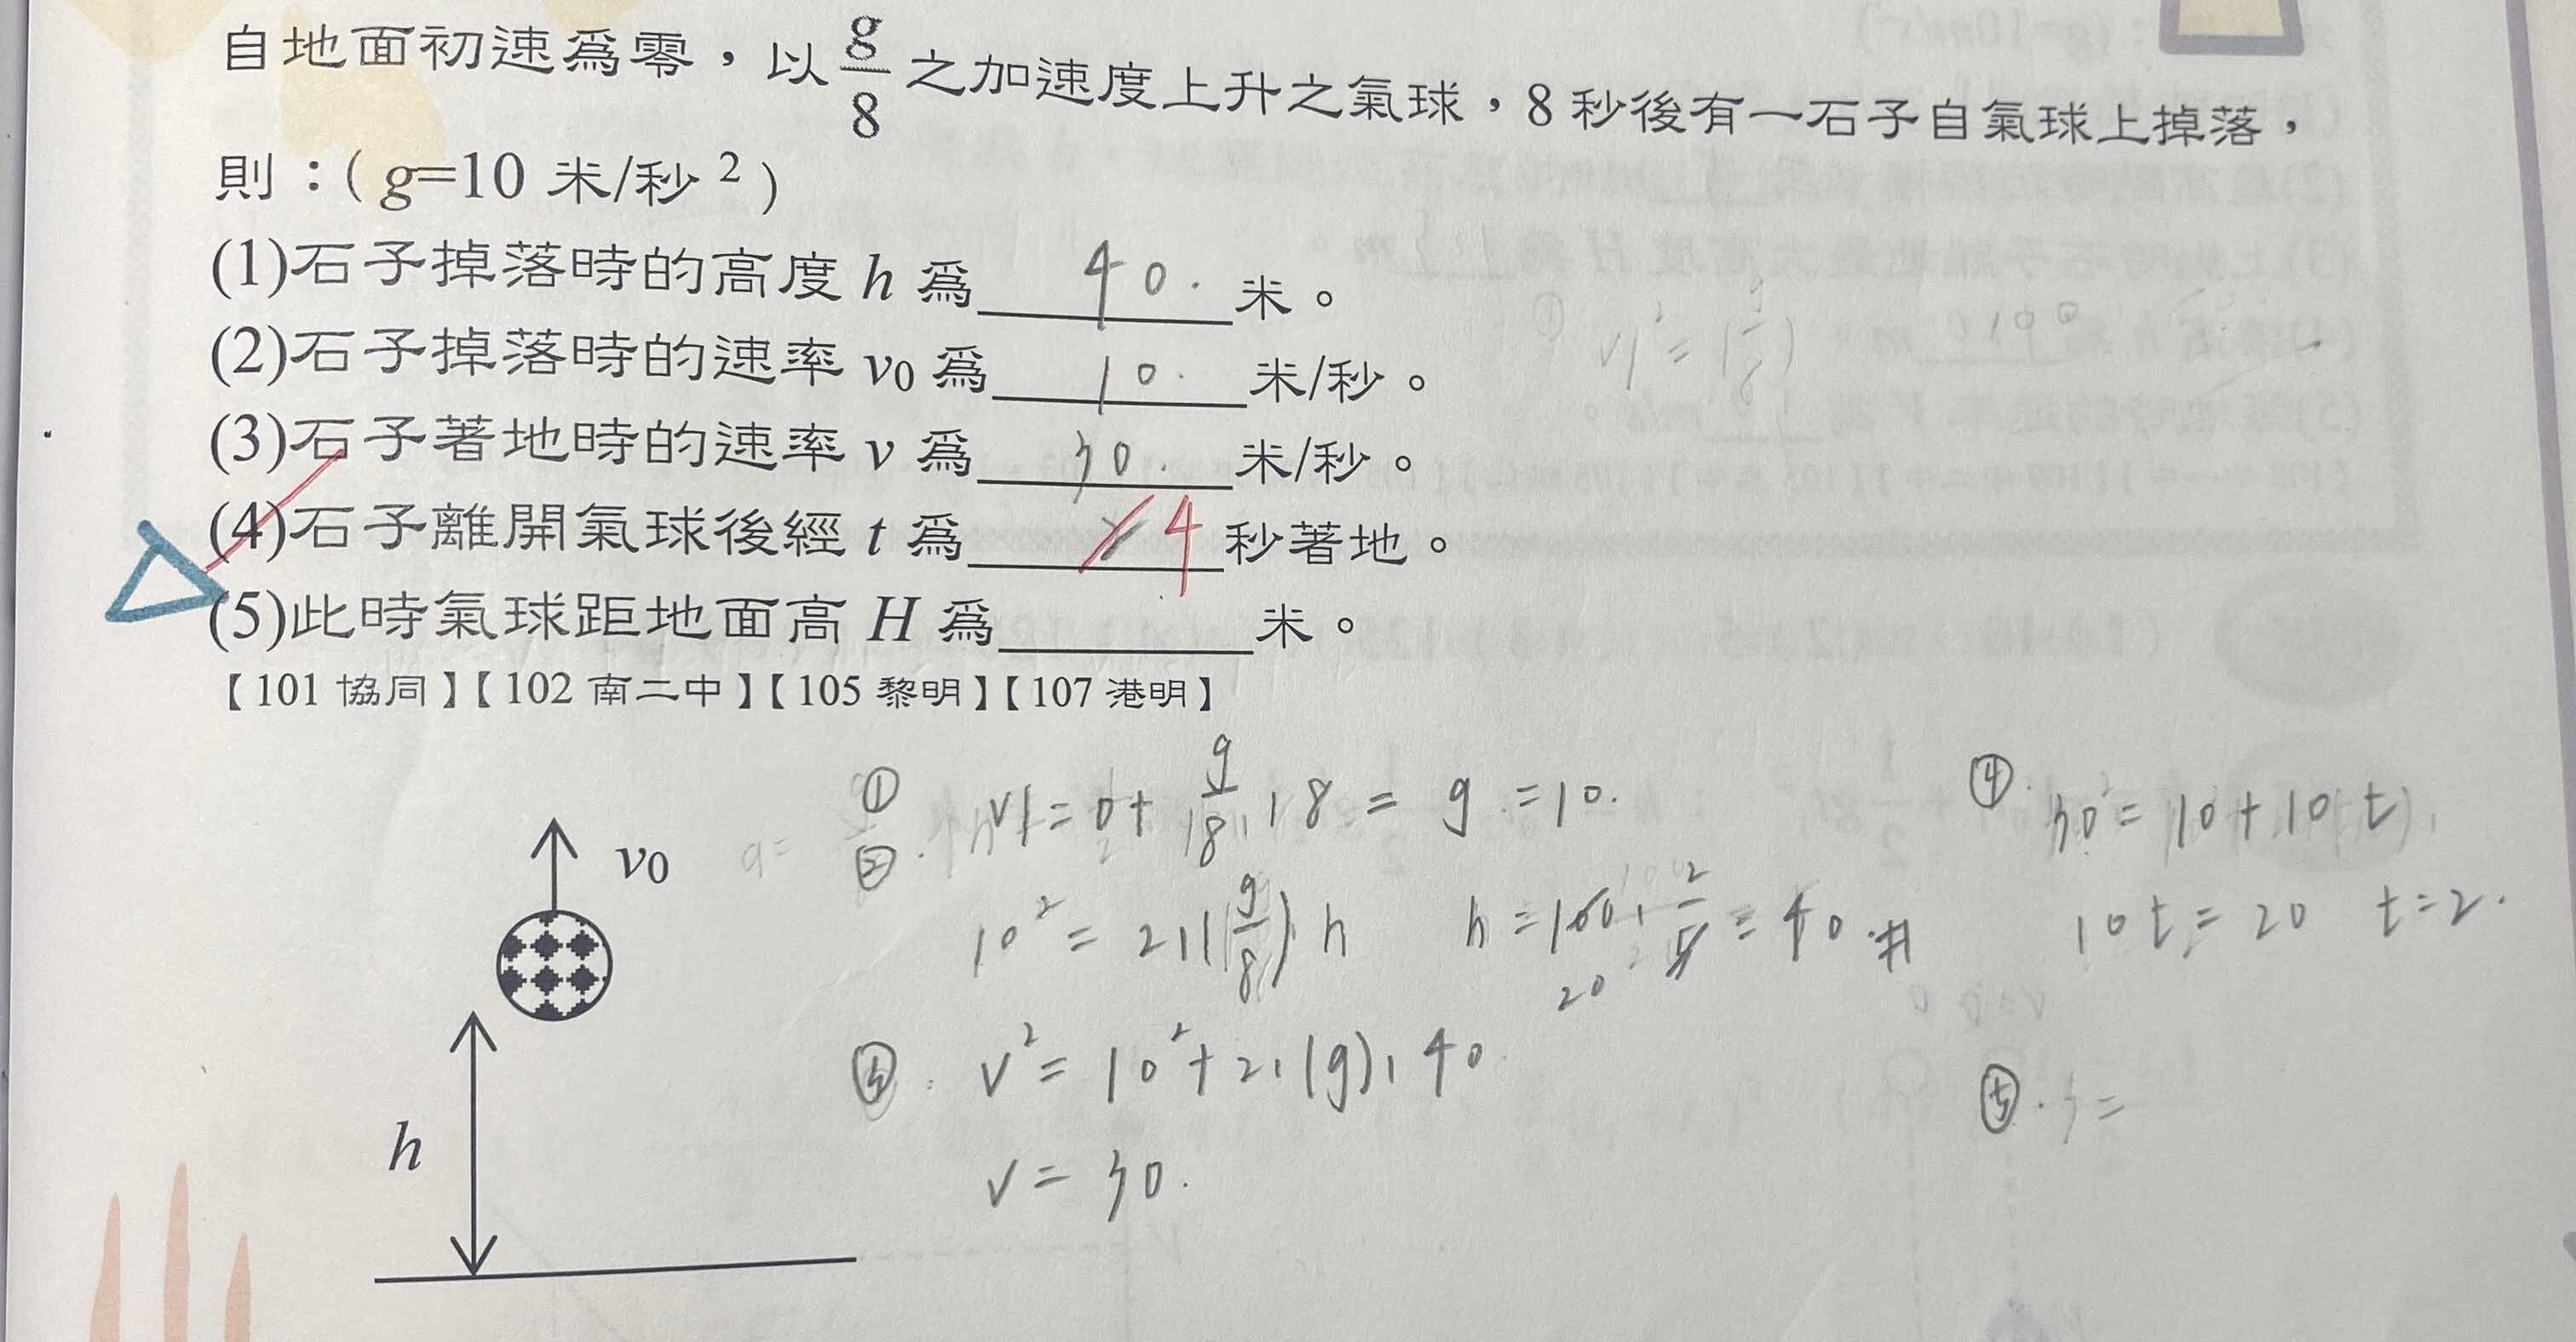 自地面初速為零，以 g/8 之加速度上升之氣球，8 秒後有一石子自氣球上掉落，
則：( g=10 米/秒² )
(1)石子掉落時的高度 h 為 40. 米。
(2)石子掉落時的速率 v0 為 10. 米/秒。
(3)石子著地時的速率 v 為 30. 米/秒。
(4)石子離開氣球後經 t 為 2 4 秒著地。
(5)此時氣球距地面高 H 為 米。
【101 協同】【102 南二中】【105 黎明】【107 港明】
v0
h
① V1 = 0 + g/8 · 8 = g = 10.
② 10² = 2·(g/8)·h h = 100 · 2/5 = 40 #
20
③ V² = 10² + 2·(g)·40
V = 30.
④ 30 = 10 + 10·t
10t = 20 t = 2.
⑤